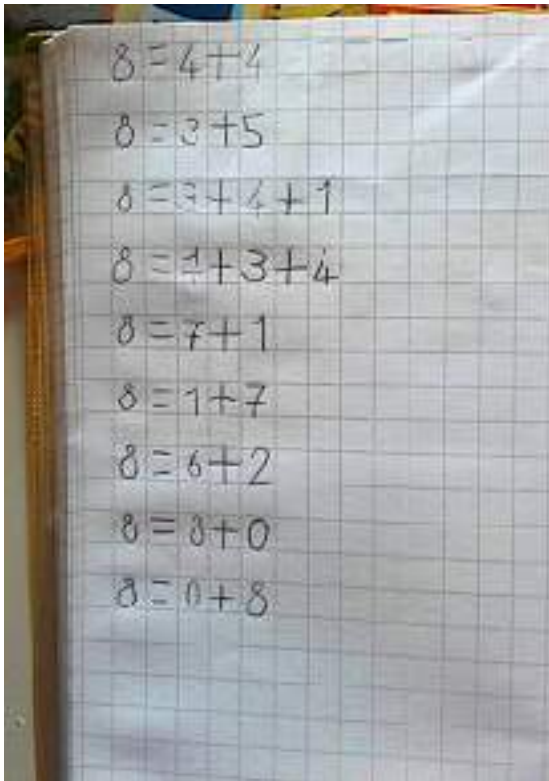 8=4+4
8=3+5
8=3+4+1
8=1+3+4
8=7+1
8=1+7
8=6+2
8=8+0
8=0+8